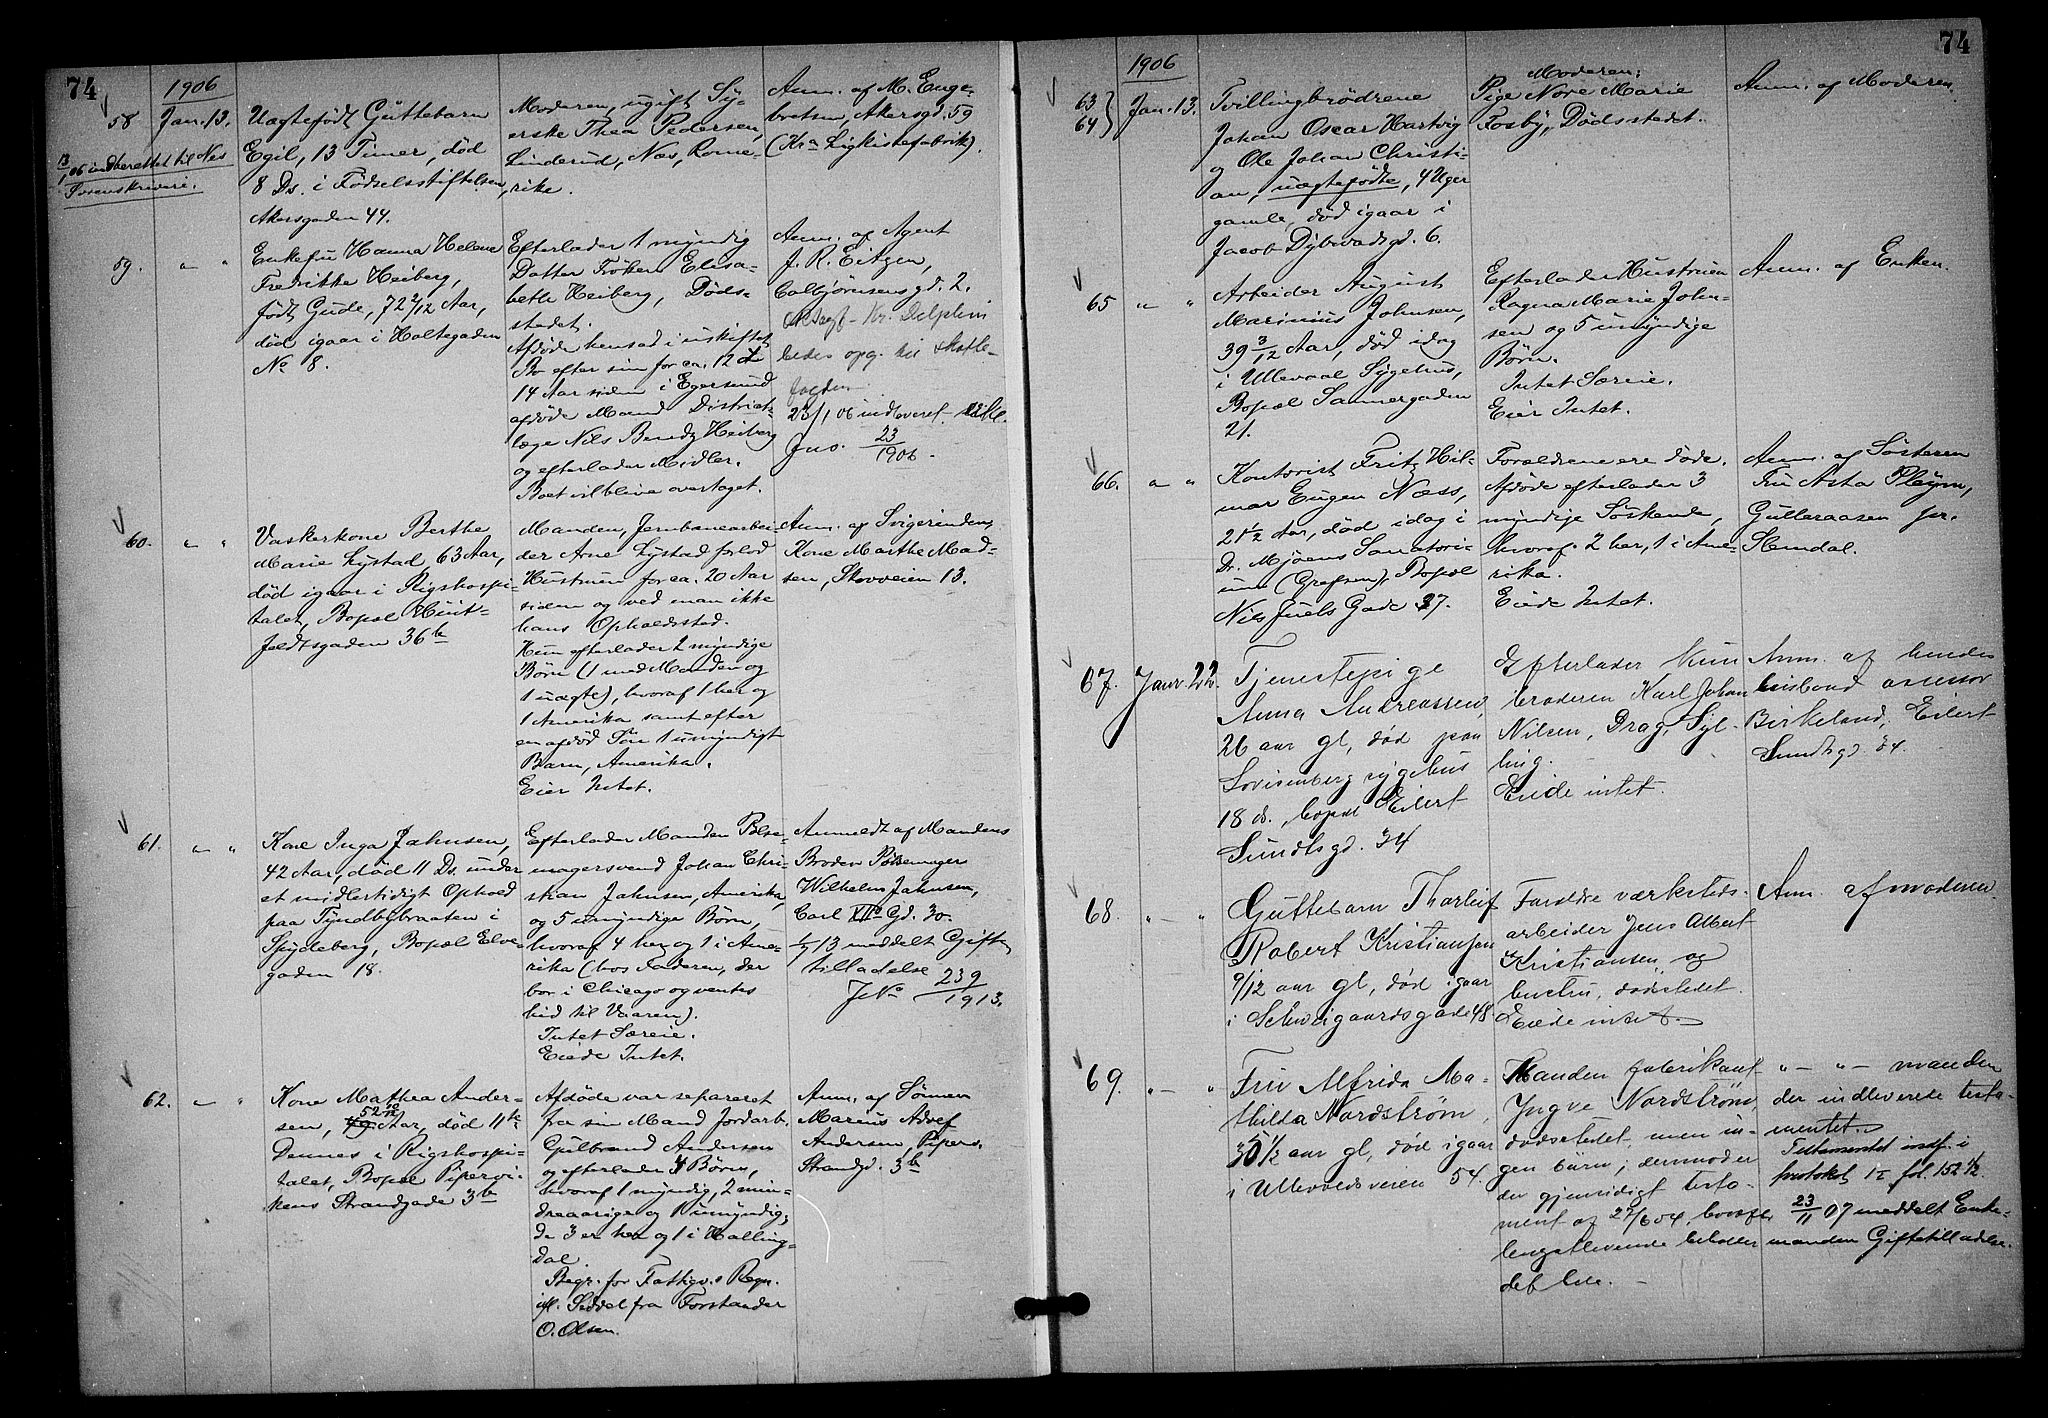 74
1906
58
Jan. 13.
13/1 06 indberettet til Nes
Sorenskriveri.
Uægtefødt Guttebarn
Egil, 13 Timer, død
8 Ds. i Fødselsstiftelsen,
Akersgaden 44.
Moderen, ugift Sy-
erske Thea Pedersen,
Linderud, Næs, Rome-
rike.
Anm. af M. Enge-
bretsen, Akersgd. 59
(Kra Ligkistefabrik).
59.
" "
Enkefru Hanna Helene
Fredrikke Heiberg,
født Gude, 72 2/12 Aar,
død igaar i Holtegaden
No 8.
Efterlader 1 myndig
Datter Frøken Elisa-
beth Heiberg, Døds-
stedet.
Afdøde hensad i uskiftet
Bo efter sin for ca. 12 à
14 Aar siden i Egersund
afdøde Mand District-
læge Nils Bendz Heiberg
og efterlader Midler.
Boet vil blive overtaget.
Anm. af Agent
J. R. Eitzen,
Colbjørnsensgd. 2.
Kr. Delphin
bedes opg. til Skifte-
fogden
23/1 06 indleveret
Jno. 23/1906.
60.
" "
Vaskerkone Berthe
Marie Lystad, 63 Aar,
død igaar i Rigshospi-
talet, Bopæl Huit-
feldtsgaden 36 b
Manden, Jernbanearbei-
der Arne Lystad forlod
Hustruen for ca. 20 Aar
siden og ved man ikke
hans Opholdssted.
Hun efterlader 2 myndige
Børn (1 med Manden og
1 uægte), hvoraf 1 her og
1 Amerika samt efter
en afdød Søn 1 umyndigt
Barn, Amerika.
Eier Intet.
Anm. af Svigerinden,
Kone Marthe Mad-
sen, Skovveien 13.
61.
" "
Kone Inga Jahnsen,
42 Aar, død 11 Ds. under
et midlertidigt Ophold
paa Tyndbybraaten i
Spydeberg, Bopæl Elve-
gaden 18.
Efterlader Manden Pølse-
magersvend Johan Chri-
stian Jahnsen, Amerika,
og 5 umyndige Børn,
hvoraf 4 her og 1 i Ame-
rika (hos Faderen, der
bor i Chicago og ventes
hid til Vaaren).
Intet Særeie.
Eiede Intet.
Anmeldt af Mandens
Broder Pølsemager
Wilhelm Jahnsen,
Carl XIIs Gd. 30.
1/7 13 meddelt Gifte
tilladelse
JNo 239/1913.
62.
" "
Kone Mathea Ander-
52 10/12
sen, 49 Aar, død 11te
Dennes i Rigshospi-
talet, Bopæl Pipervi-
kens Strandgade 3 b
Afdøde var separeret
fra sin Mand Jordarb.
Gulbrand Andersen
og efterlader 4 Børn,
hvoraf 1 myndig, 2 min-
dreaarige og 1 umyndig;
de 3 er her og 1 i Halling-
dal.
Begr. for Fattigv.s Regn.
ifl. Seddel fra Forstander
O. Olsen.
Anm. af Sønnen
Marius Adolf
Andersen, Piperv.
Strandgd. 3 b
74
1906
63
64
Jan. 13.
Tvillingbrødrene
Johan Oscar Hartvig
og Ole Johan Christi-
an, uægtefødte, 4 Uger
gamle, død igaar i
Jacob Dybwadsgd. 6.
Moderen:
Pige Nove Marie
Fosby, Dødsstedet.
Anm. af Moderen.
65
" "
Arbeider August
Marinius Johnsen,
39 3/12 Aar, død idag
i Ullevaal Sygehus,
Bopæl Sannergaden
21.
Efterlader Hustruen
Ragna Marie John-
sen og 5 umyndige
Børn.
Intet Særeie.
Eier Intet.
Anm. af Enken.
66.
" "
Kontorist Fritz Hil-
mar Eugen Næss,
21 1/2 Aar, død idag i
Dr. Mjøens Sanatori-
um (Grefsen), Bopæl
Nils Juels Gade 27.
Forældrene ere døde.
Afdøde efterlader 3
myndige Søskende,
hvoraf 2 her, 1 i Ame-
rika.
Eiede Intet.
Anm. af Søsteren
Fru Asta Pleym,
Gulleraasen pr.
Slemdal.
67.
Janr. 22.
Tjenestepige
Anna Andreassen,
26 aar gl, død paa
Lovisenberg sygehus
18 ds., bopæl Eilert
Sundtsgd. 34
Efterlader kun
broderen Karl Johan
Nilsen, Drag, Syl-
ling.
Eiede intet.
Anm. af hendes
husbond assessor
Birkeland, Eilert
Sundtsgd. 34.
68.
" "
Guttebarn Thorleif
Robert Kristiansen
9/12 aar gl, død igaar
i Schweigaardsgade 48
Forældre værksteds-
arbeider Jens Albert
Kristiansen og
hustru, dødsstedet.
Eiede intet.
Anm. af moderen
69.
" "
Fru Alfrida Ma-
thilda Nordstrøm,
35 1/2 aar gl, død igaar
i Ullevoldsveien 54.
Manden fabrikant
Yngve Nordstrøm,
dødsstedet, men in-
gen børn; dermoder
der gjensidigt testa-
ment af 27/6 04, hvorefter
længstlevende beholder
det hele.
" " manden
der indleverede testa-
mentet.
Testamentet indf. i
protokol 12 fol. 152 1/2
23/11 07 meddelt Enke-
manden Giftetilladelse.